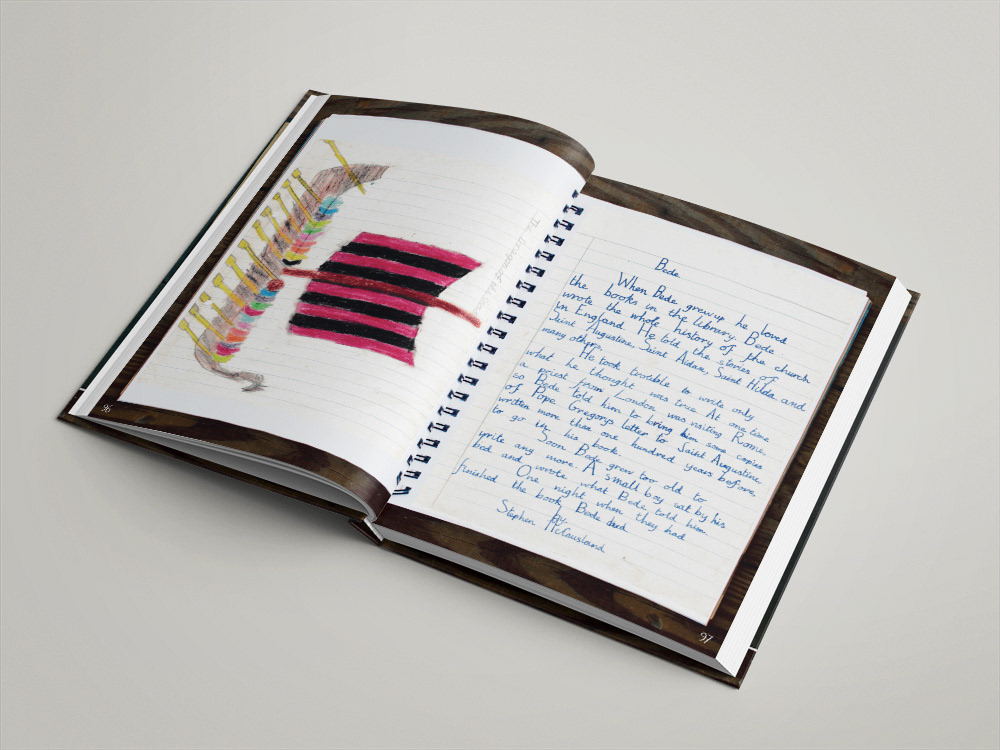 The Dragon of
96
Bede.
When Bede grew up he loved
the books in the library. Bede
wrote the whole history of the church
in England. He told the stories of
Saint Augustine, Saint Aidan, Saint Hilda, and
many others.
He took trouble to write only
what he thought was true. At one time
a priest from London was visiting Rome.
so Bede told him to bring him some copies
of Pope Gregorys letter to Saint Augustine
written more than one hundred years before
to go in his book.
Soon Bede grew too old to
write any more. A small boy sat by his
bed and wrote what Bede told him.
One night when they had
finished the book, Bede died.
by
Stephen McCausland
97